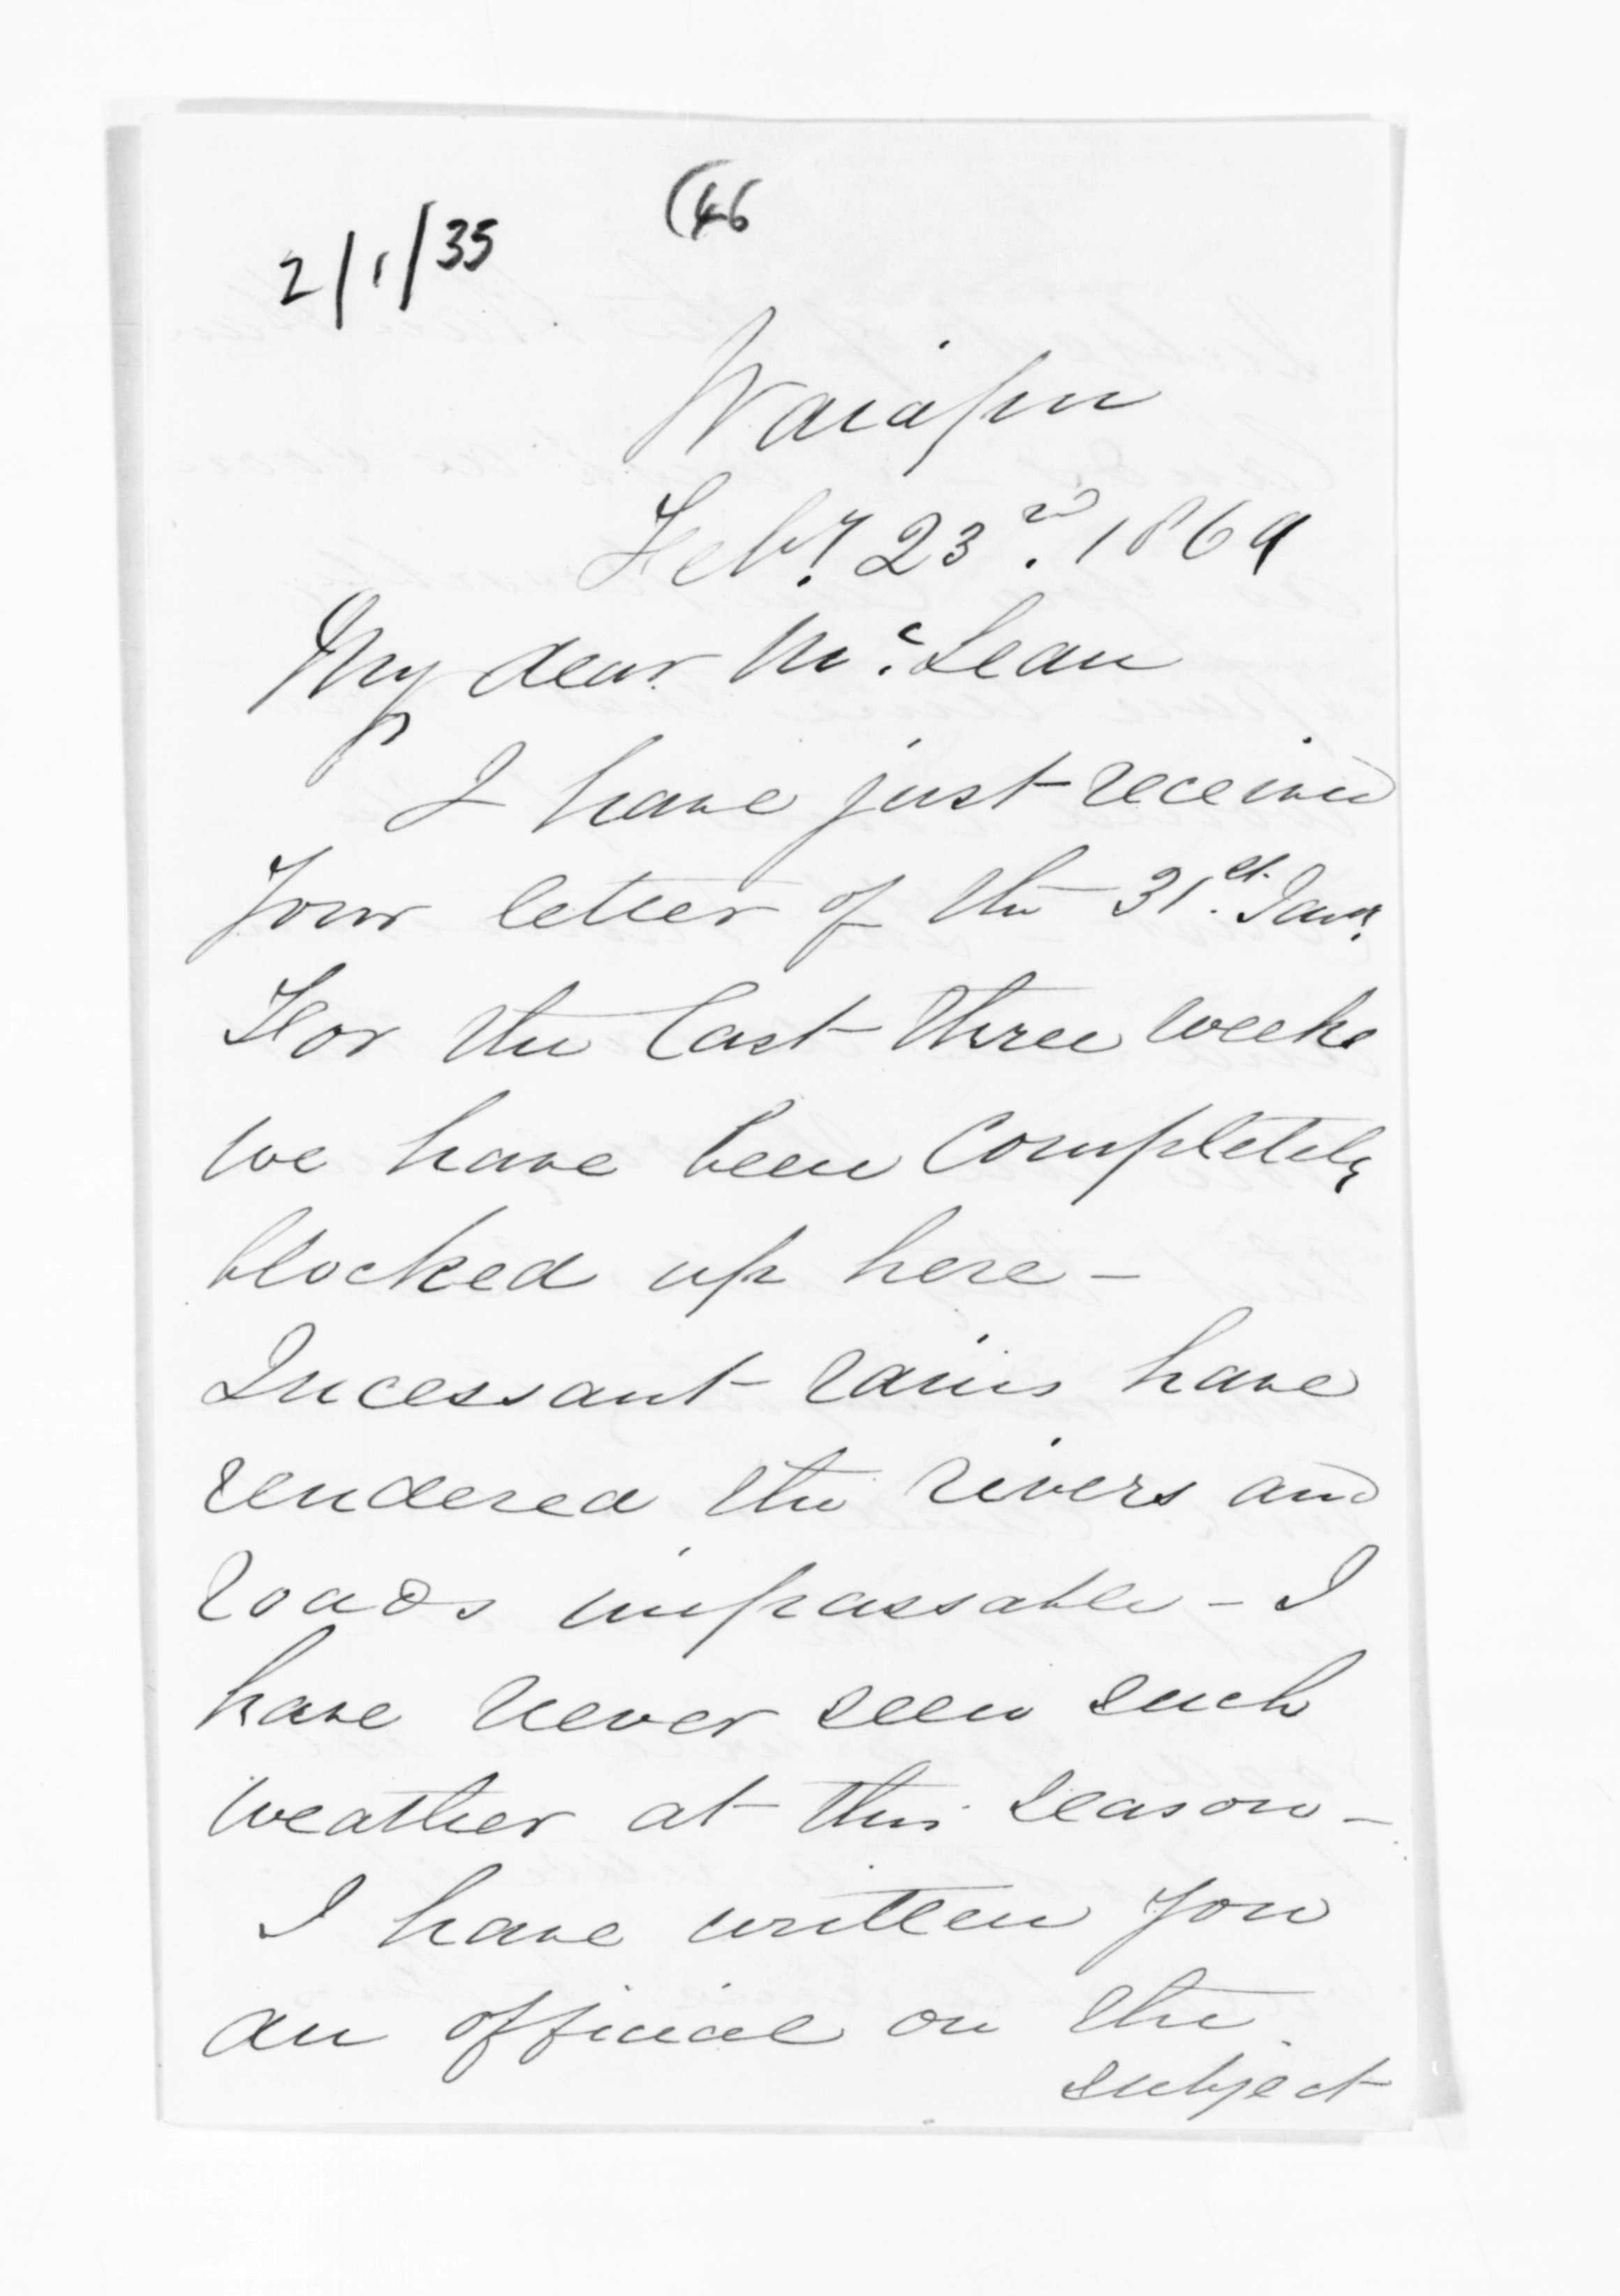 (46
2/1/35
Waiapu
Feby. 23rd. 1869
My dear McLean
I have just received
your letter of the 31st. Jany.
For the last three weeks
we have been completely
blocked up here –
Incessant rains have
rendered the rivers and
roads impassable – I
have never seen such
weather at this season –
I have written you
an official on the
subject